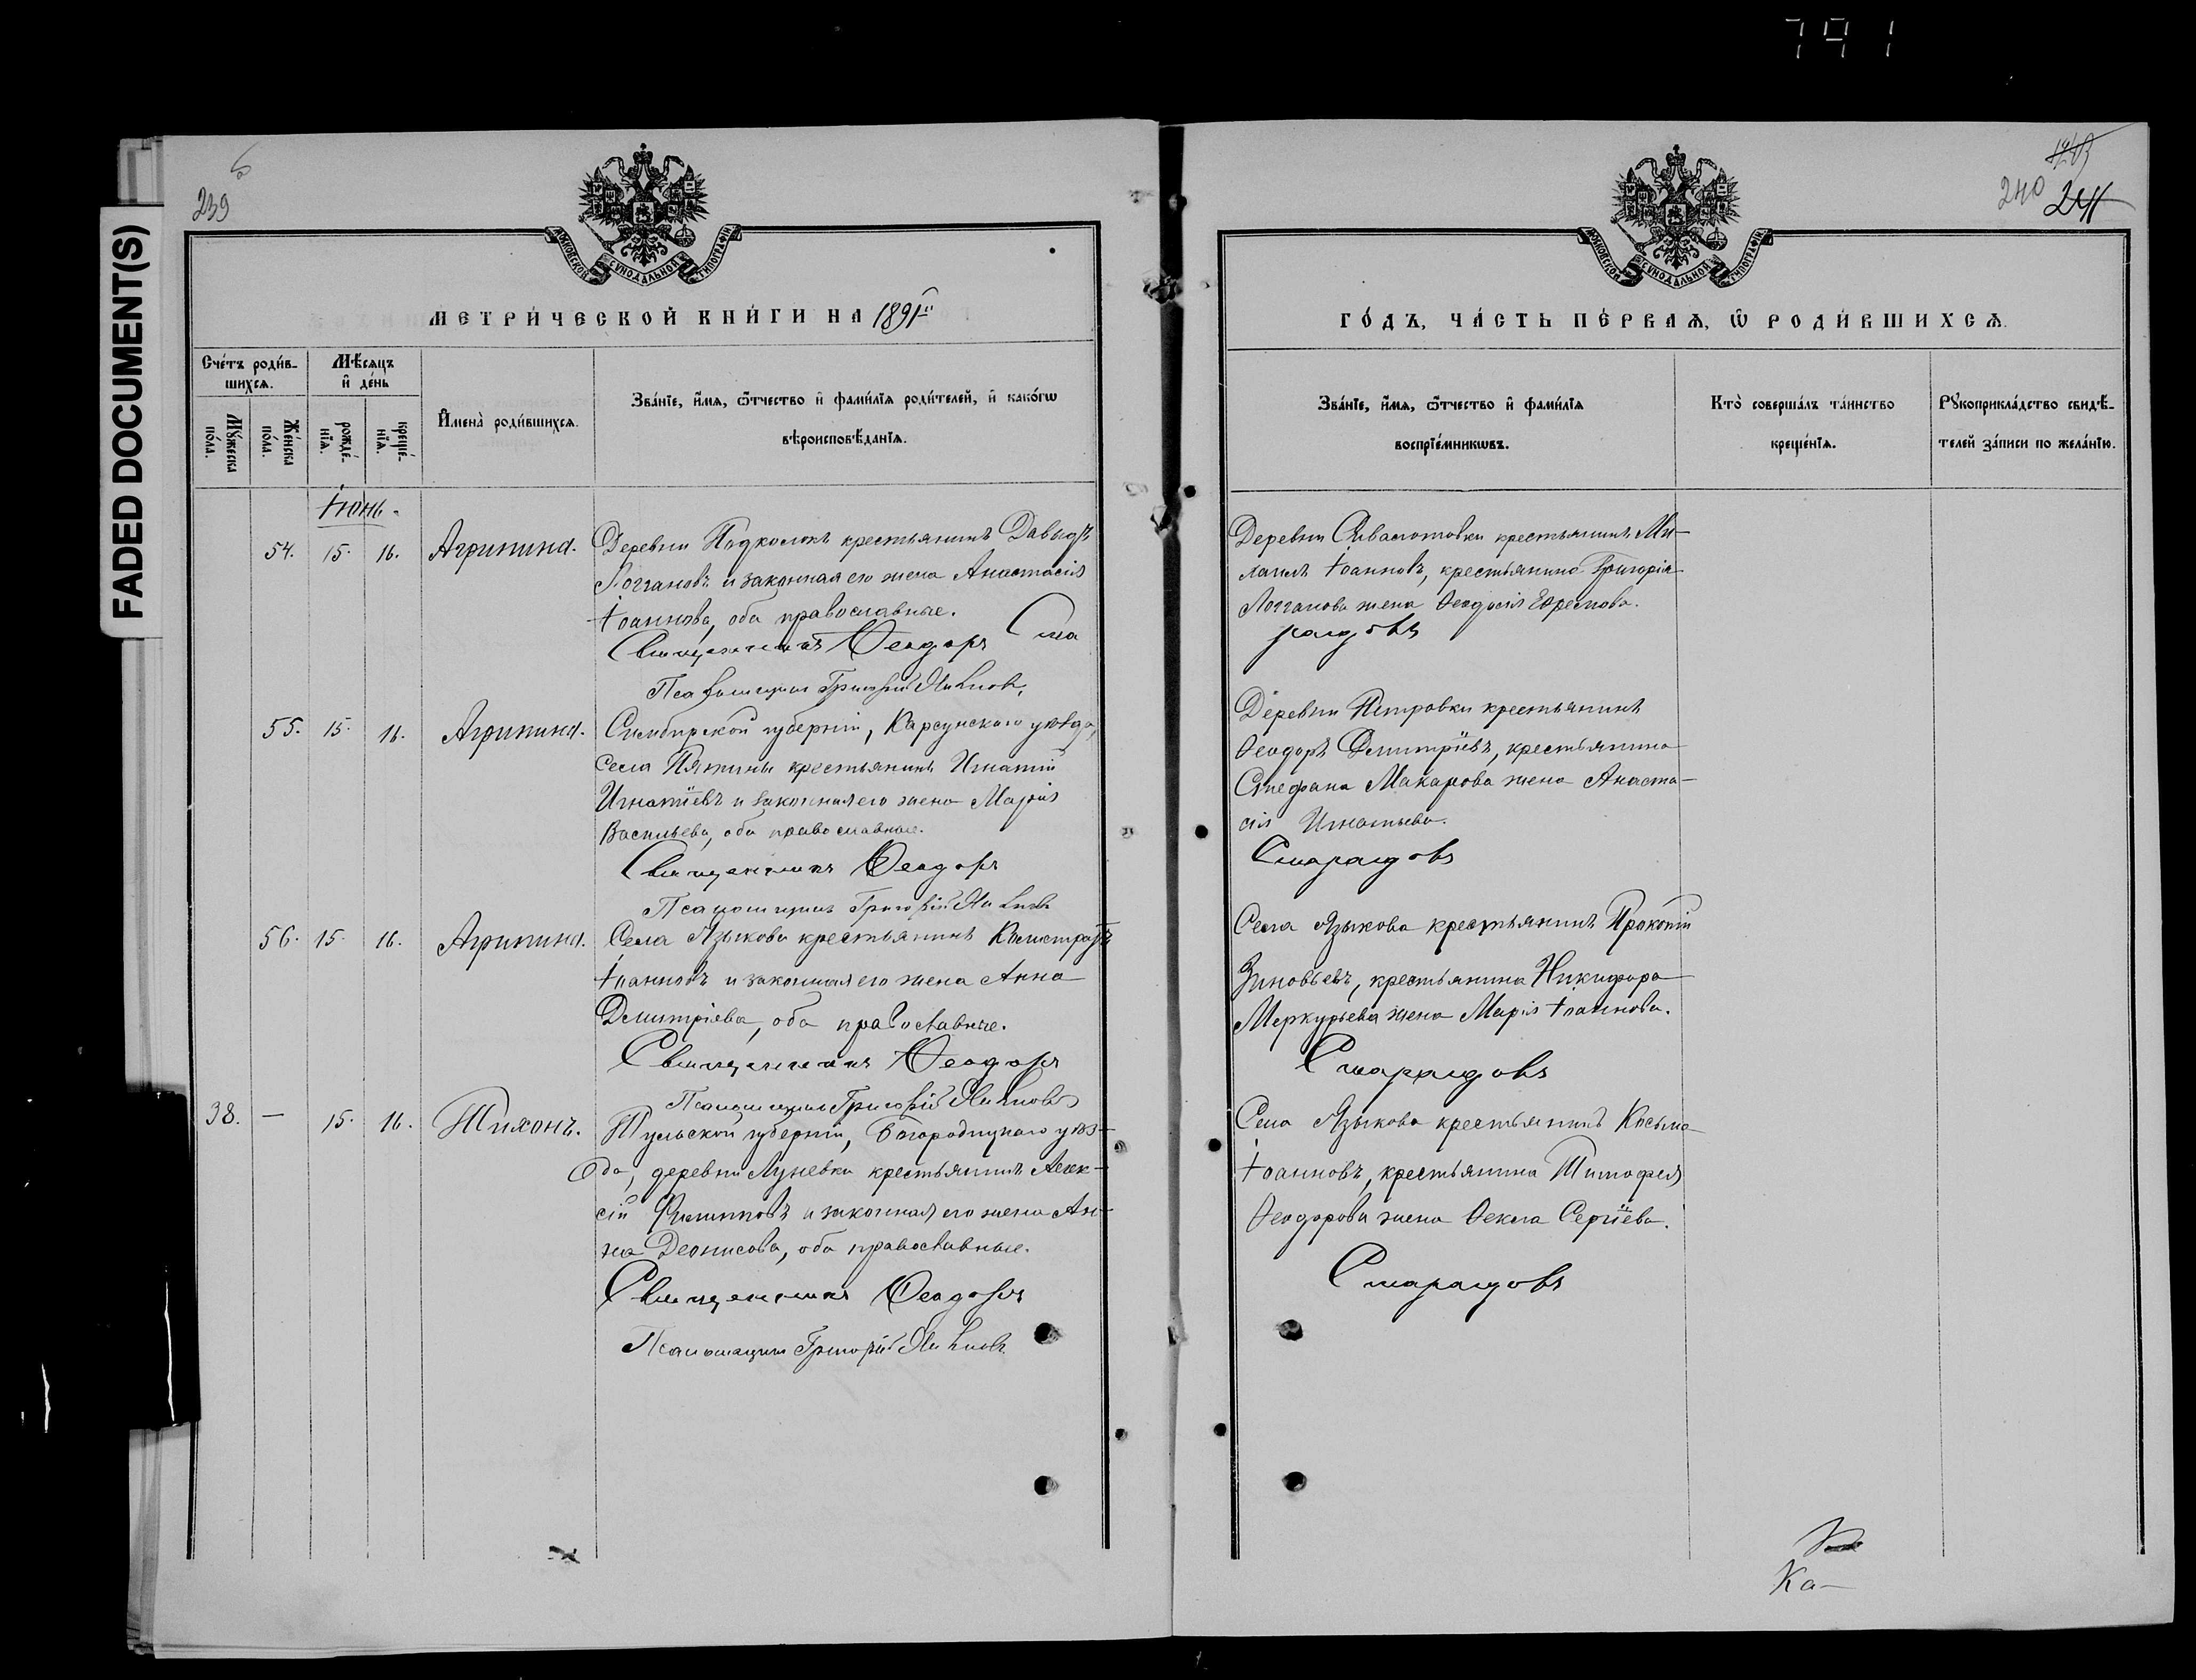 791
FADED DOCUMENT(S)
239
МОСКОВСКОЙ СУНОДАЛЬНОЙ ТИПОГРАФІИ
МЕТРИ́ЧЕСКОЙ КНИ́ГИ НА 1891й
Сче́тъ роди́в-
шихся.
Мѣ́сяцъ
и҆ де́нь
Му́жеска по́ла.
Же́нска по́ла.
рожде́-нїя.
креще́-нїя.
И҆мена̀ роди́вшихся.
Зва́нїе, и҆́мя, ѻ҆́тчество и҆ фами́лїя роди́телей, и҆ како́гѡ
вѣроисповѣ́данїя.
Іюнь.
54. 15. 16. Агрипина. Деревни Подколокъ крестьянинъ Давыдъ
Логгановъ и законная его жена Анастасія
Іоаннова, оба православные.
Священникъ Ѳеодоръ Сма
Псаломщикъ Григорій
55. 15. 16. Агрипина. Симбирской губерніи, Карсунскаго уѣзда,
села Пятины крестьянинъ Игнатій
Игнатіевъ и законная его жена Марія
Васильева, оба православные.
Священникъ Ѳеодоръ
Псаломщикъ Григорій
56. 15. 16. Агрипина. Села Языкова крестьянинъ Калистратъ
Іоанновъ и законная его жена Анна
Димитріева, оба православные.
Священникъ Ѳеодоръ
Псаломщикъ Григорій
38. — 15. 16. Тихонъ. Тульской губерніи, Богородицкаго уѣз-
да, деревни Луневки крестьянинъ Алек-
сій Филипповъ и законная его жена Ан-
на Деонисова, оба православные.
Священникъ Ѳеодоръ
Псаломщикъ Григорій
240 241
МОСКОВСКОЙ СУНОДАЛЬНОЙ ТИПОГРАФІИ
ГО́ДЪ, ЧА́СТЬ ПЕ́РВАЯ, Ѡ҆ РОДИ́ВШИХСЯ.
Зва́нїе, и҆́мя, ѻ҆́тчество и҆ фами́лїя
воспрїе́мникѡвъ.
Кто̀ соверша́лъ та́инство
креще́нїя.
Рꙋкоприкла́дство свидѣ́-
телей за́писи по жела́нїю.
Деревни крестьянинъ Ми-
хаилъ Іоанновъ, крестьянина Григорія
Логганова жена Ѳеодосія Ефремова.
рагдовъ
Деревни Петровки крестьянинъ
Ѳеодоръ Димитріевъ, крестьянина
Стефана Макарова жена Анаста-
сія Игнатьева.
Смарагдовъ
Села Языкова крестьянинъ Прокопій
Зиновьевъ, крестьянина Никифора
Меркурьева жена Марія Іоаннова.
Смарагдовъ
Села Языкова крестьянинъ Косьма
Іоанновъ, крестьянина Тимофея
Ѳеодорова жена Ѳекла Сергіева.
Смарагдовъ
Ка-